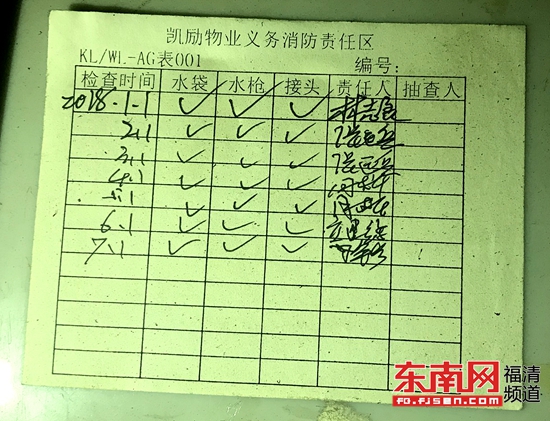 凯励物业义务消防责任区
KL/WL-AG表001 编号:
检查时间 水袋 水枪 接头 责任人 抽查人
2018.1.1 ✓ ✓ ✓ 林志良
2.1 ✓ ✓ ✓
3.1 ✓ ✓ ✓
4.1 ✓ ✓ ✓
5.1 ✓ ✓ ✓
6.1 ✓ ✓ ✓
7.1 ✓ ✓ ✓
东南网 福清频道
fq.fjsen.com